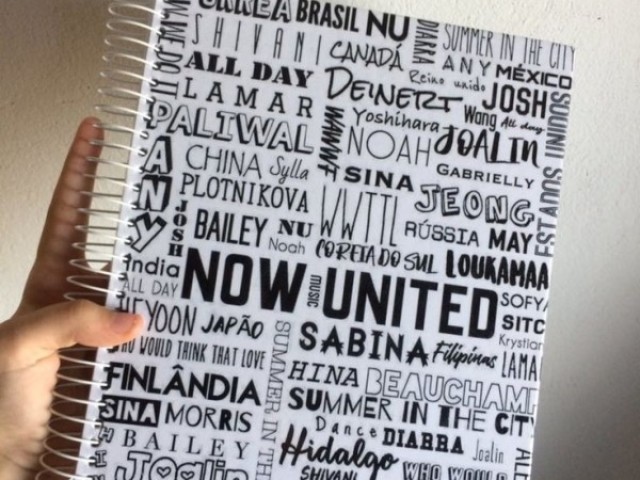 BRASIL NU
SHIVANI
CANADÁ
DIARRA
SUMMER IN THE CITY
ANY MÉXICO
WE DO IT
ALL DAY
Reino unido
LAMAR
DEINERT
JOSH
PALIWAL
Yoshihara
Wang All day
NOAH
JOALIN
WWWF
ANY
CHINA Sylla
SINA
GABRIELLY
PLOTNIKOVA
WWTTL
JEONG
JOSH
BAILEY NU
Noah
RÚSSIA MAY
COREIA DO SUL
LOUKAMAA
India
ALL DAY
NOW UNITED
MUSIC
SOFYA
HEYOON JAPÃO
SABINA
SITC
Krystian
WHO WOULD THINK THAT LOVE
Filipinas
LAMA
SUMMER IN TH
HINA BEAUCHAMP
FINLÂNDIA
SUMMER IN THE CITY
SINA MORRIS
Dance DIARRA Joalin
BAILEY
Hidalgo
Joalin
SHIVANI
WHO WOUL